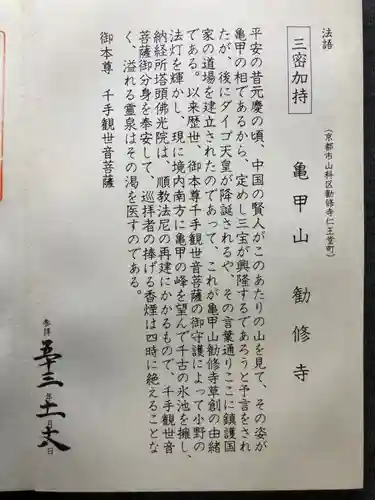 法語
三密加持
亀甲山 勧修寺
(京都市山科区勧修寺仁王堂町)
平安の昔元慶の頃、中国の賢人がこのあたりの山を見て、その姿が
亀甲の相であるから、定めし三宝が興隆するであろうと予言をされ
たが、後にダイゴ天皇が降誕されるや、その言葉通りここに鎮護国
家の道場を建立されたのであって、これが亀甲山勧修寺草創の由緒
である。以来歴世、御本尊千手観世音菩薩の御守護によって小野の
法灯を輝かし、現に境内南方に亀甲の峰を望んで千古の氷池を擁し、
納経所塔頭佛光院は、順教法尼の再建にかかるもので、千手観世音
菩薩御分身を奉安して、巡拝者の捧げる香煙は四時に絶えることな
く、溢れる霊泉はその渇を医すのである。
御本尊 千手観世音菩薩
参拝 五十三年十一月十八日